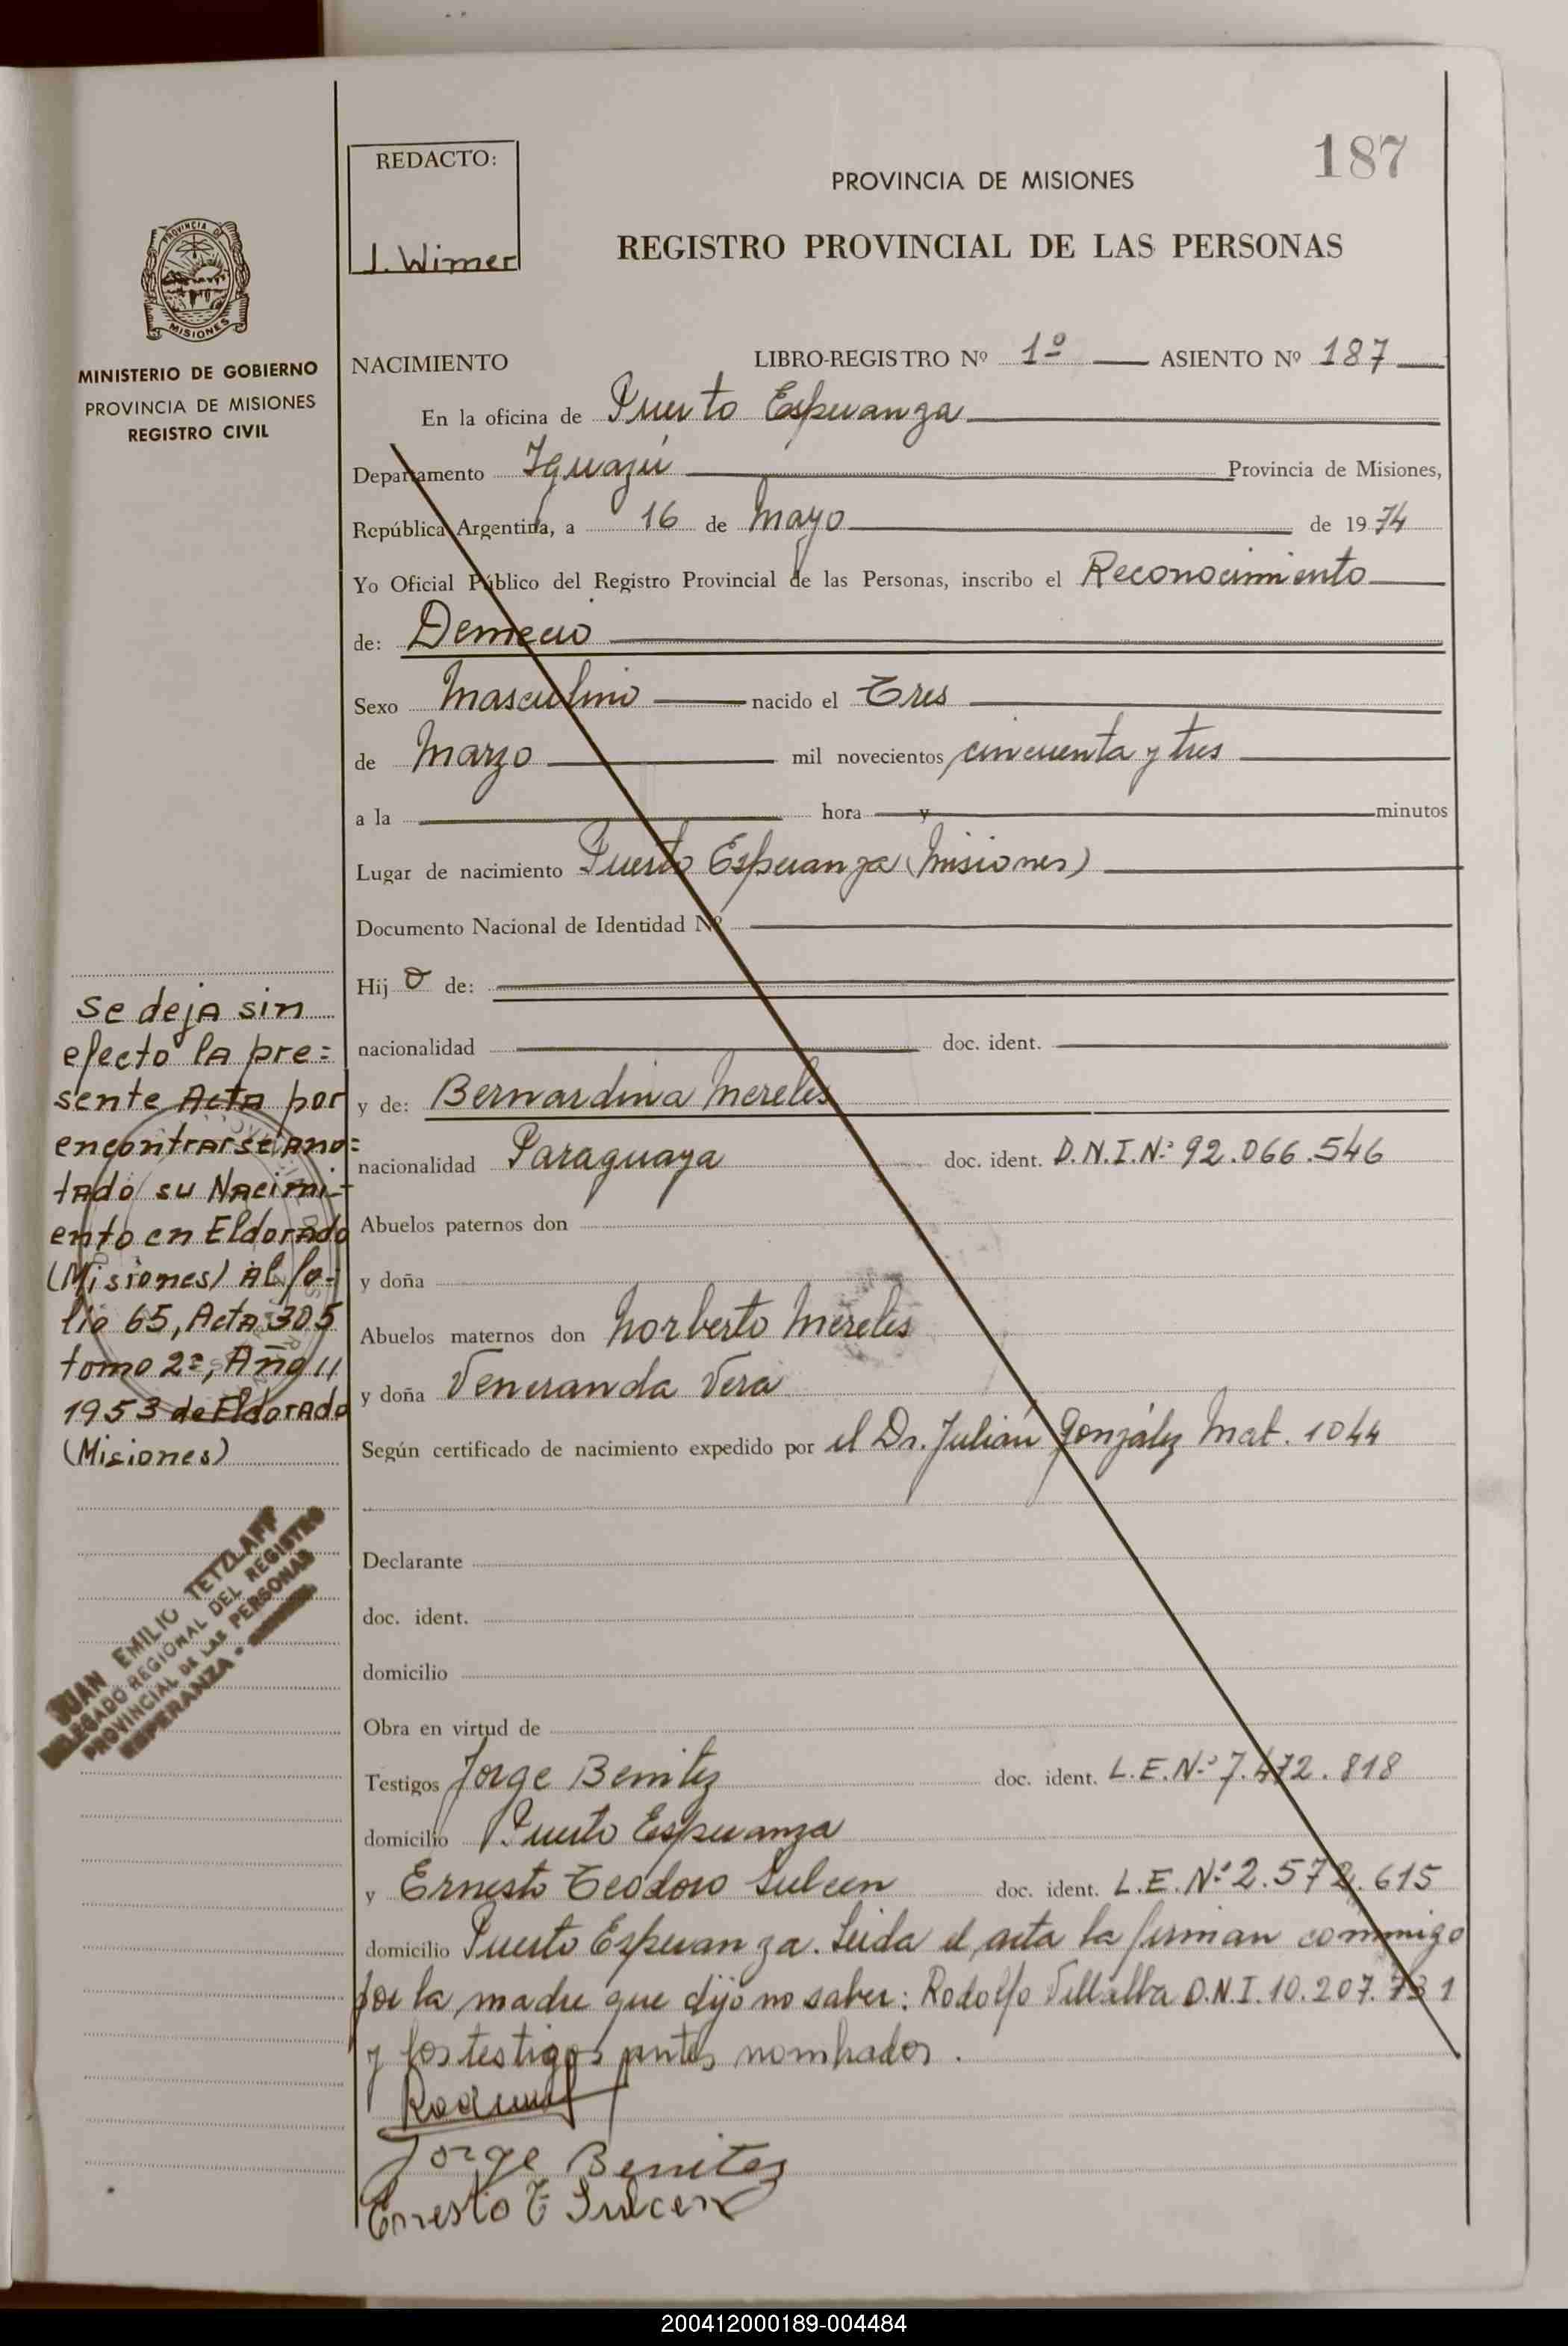 187
REDACTO:
J. Wimer
PROVINCIA DE MISIONES
REGISTRO PROVINCIAL DE LAS PERSONAS
PROVINCIA DE
MISIONES
MINISTERIO DE GOBIERNO
PROVINCIA DE MISIONES
REGISTRO CIVIL
NACIMIENTO LIBRO-REGISTRO Nº 1º ASIENTO Nº 187
En la oficina de Puerto Esperanza
Departamento Iguazú Provincia de Misiones,
República Argentina, a 16 de Mayo de 1974
Yo Oficial Público del Registro Provincial de las Personas, inscribo el Reconocimiento
de: Demecio
Sexo Masculino nacido el Tres
de Marzo mil novecientos cincuenta y tres
a la hora y minutos
Lugar de nacimiento Puerto Esperanza (Misiones)
Documento Nacional de Identidad Nº
Hijo de:
nacionalidad doc. ident.
y de: Bernardina Mereles
nacionalidad Paraguaya doc. ident. D.N.I.Nº 92.066.546
Abuelos paternos don
y doña
Abuelos maternos don Norberto Mereles
y doña Veneranda Vera
Según certificado de nacimiento expedido por el Dr. Julián González Mat. 1044
Declarante
doc. ident.
domicilio
Obra en virtud de
Testigos Jorge Benitez doc. ident. L.E.Nº 7.472.818
domicilio Puerto Esperanza
y Ernesto Teodoro Sulcen doc. ident. L.E. Nº 2.572.615
domicilio Puerto Esperanza. Leida el acta la firman conmigo
por la madre que dijo no saber: Rodolfo Villalba D.N.I. 10.207.731
y los testigos antes nombrados.
Jorge Benitez
Ernesto T Sulcen
Se deja sin
efecto la pre=
sente Acta por
encontrarse ano=
tado su Nacimi-
ento en Eldorado
(Misiones) al fo-
lio 65, Acta 305
tomo 2º, Año 11
1953 de Eldorado
(Misiones)
JUAN EMILIO TETZLAFF
DELEGADO REGIONAL DEL REGISTRO
PROVINCIAL DE LAS PERSONAS
ESPERANZA -
200412000189-004484